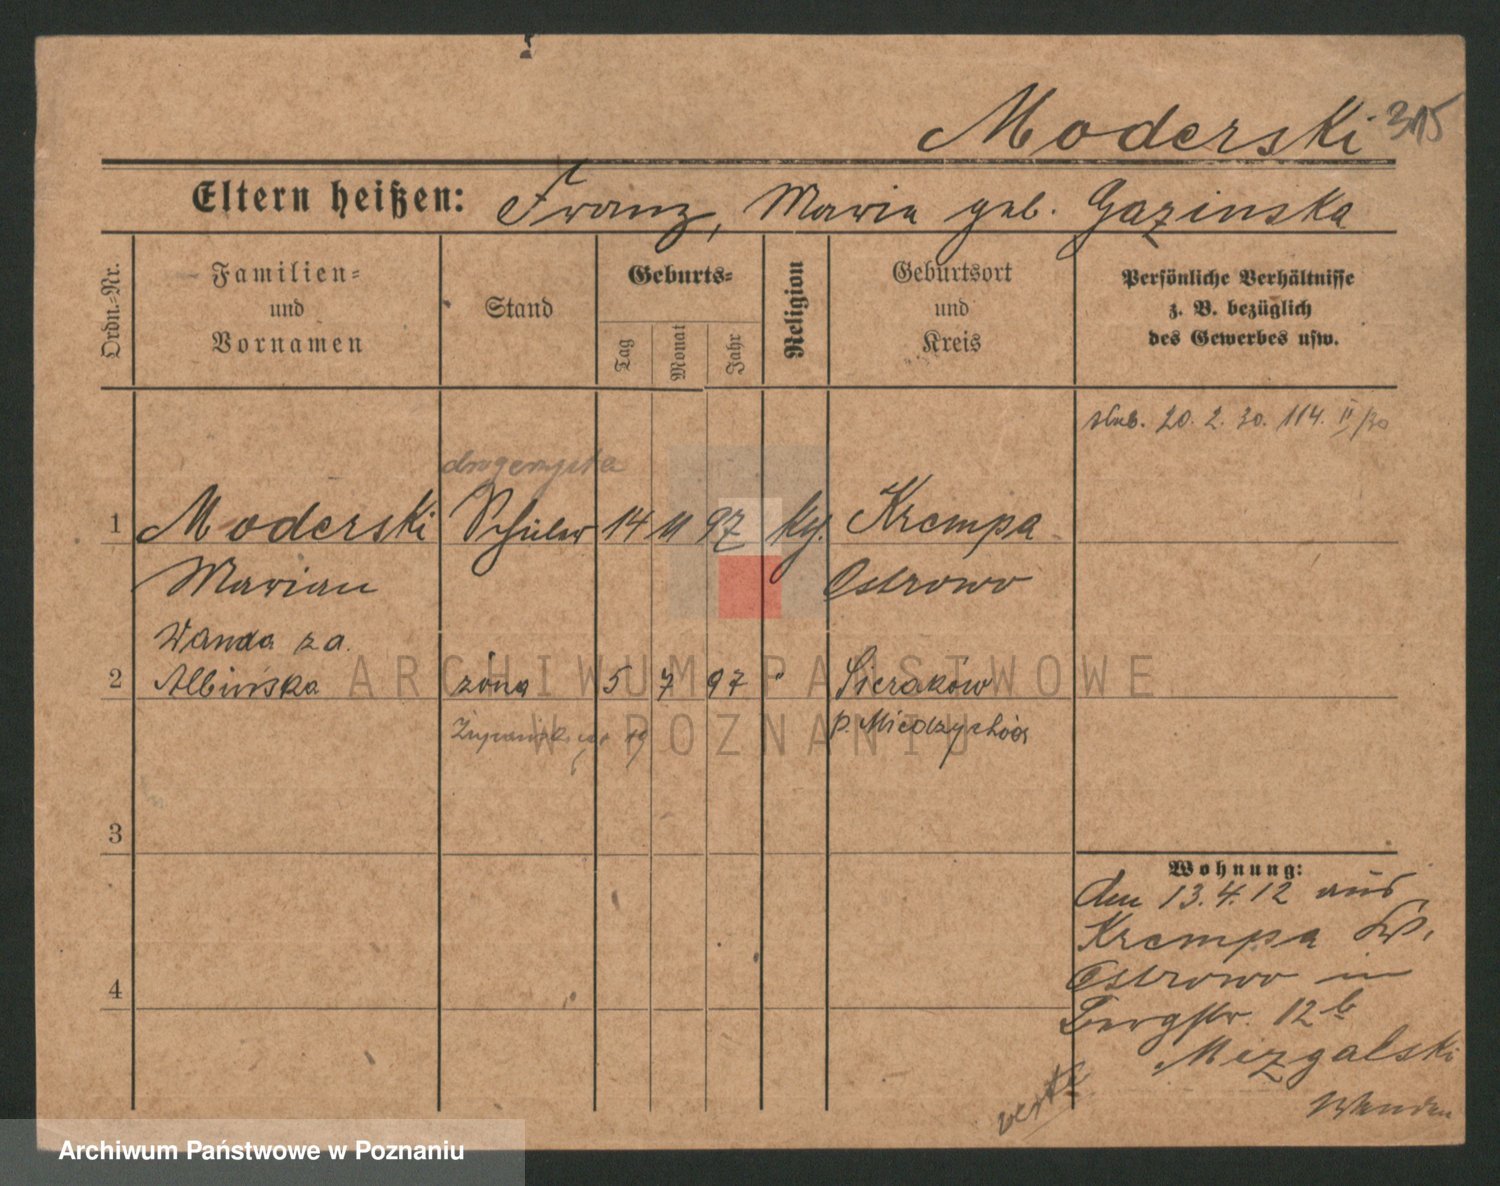 Moderski 315
Eltern heißen: Franz, Maria geb. Gazinska
Ordn.-Nr.
Familien-
und
Vornamen
Stand
Geburts-
Tag
Monat
Jahr
Religion
Geburtsort
und
Kreis
Persönliche Verhältnisse
z. B. bezüglich
des Gewerbes usw.
20. 2. 30. 114. II/30
drogerzysta
1 Moderski Schüler 14 11 97 kg. Krempa
Marian Ostrowo
Wanda z a.
2 Albińska żona 5 7 97 " Sieraków
p. Międzychód
3
4
Wohnung:
den 13.4.12 aus
Krempa Kr.
Ostrowo in
Bergstr. 12b
Mizgalski
verte
ARCHIWUM PAŃSTWOWE
W POZNANIU
Archiwum Państwowe w Poznaniu